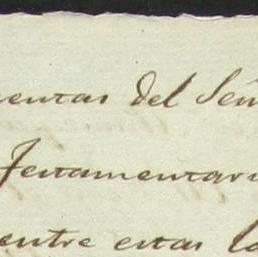 uentas del Señ
Testamentari
entre estas la